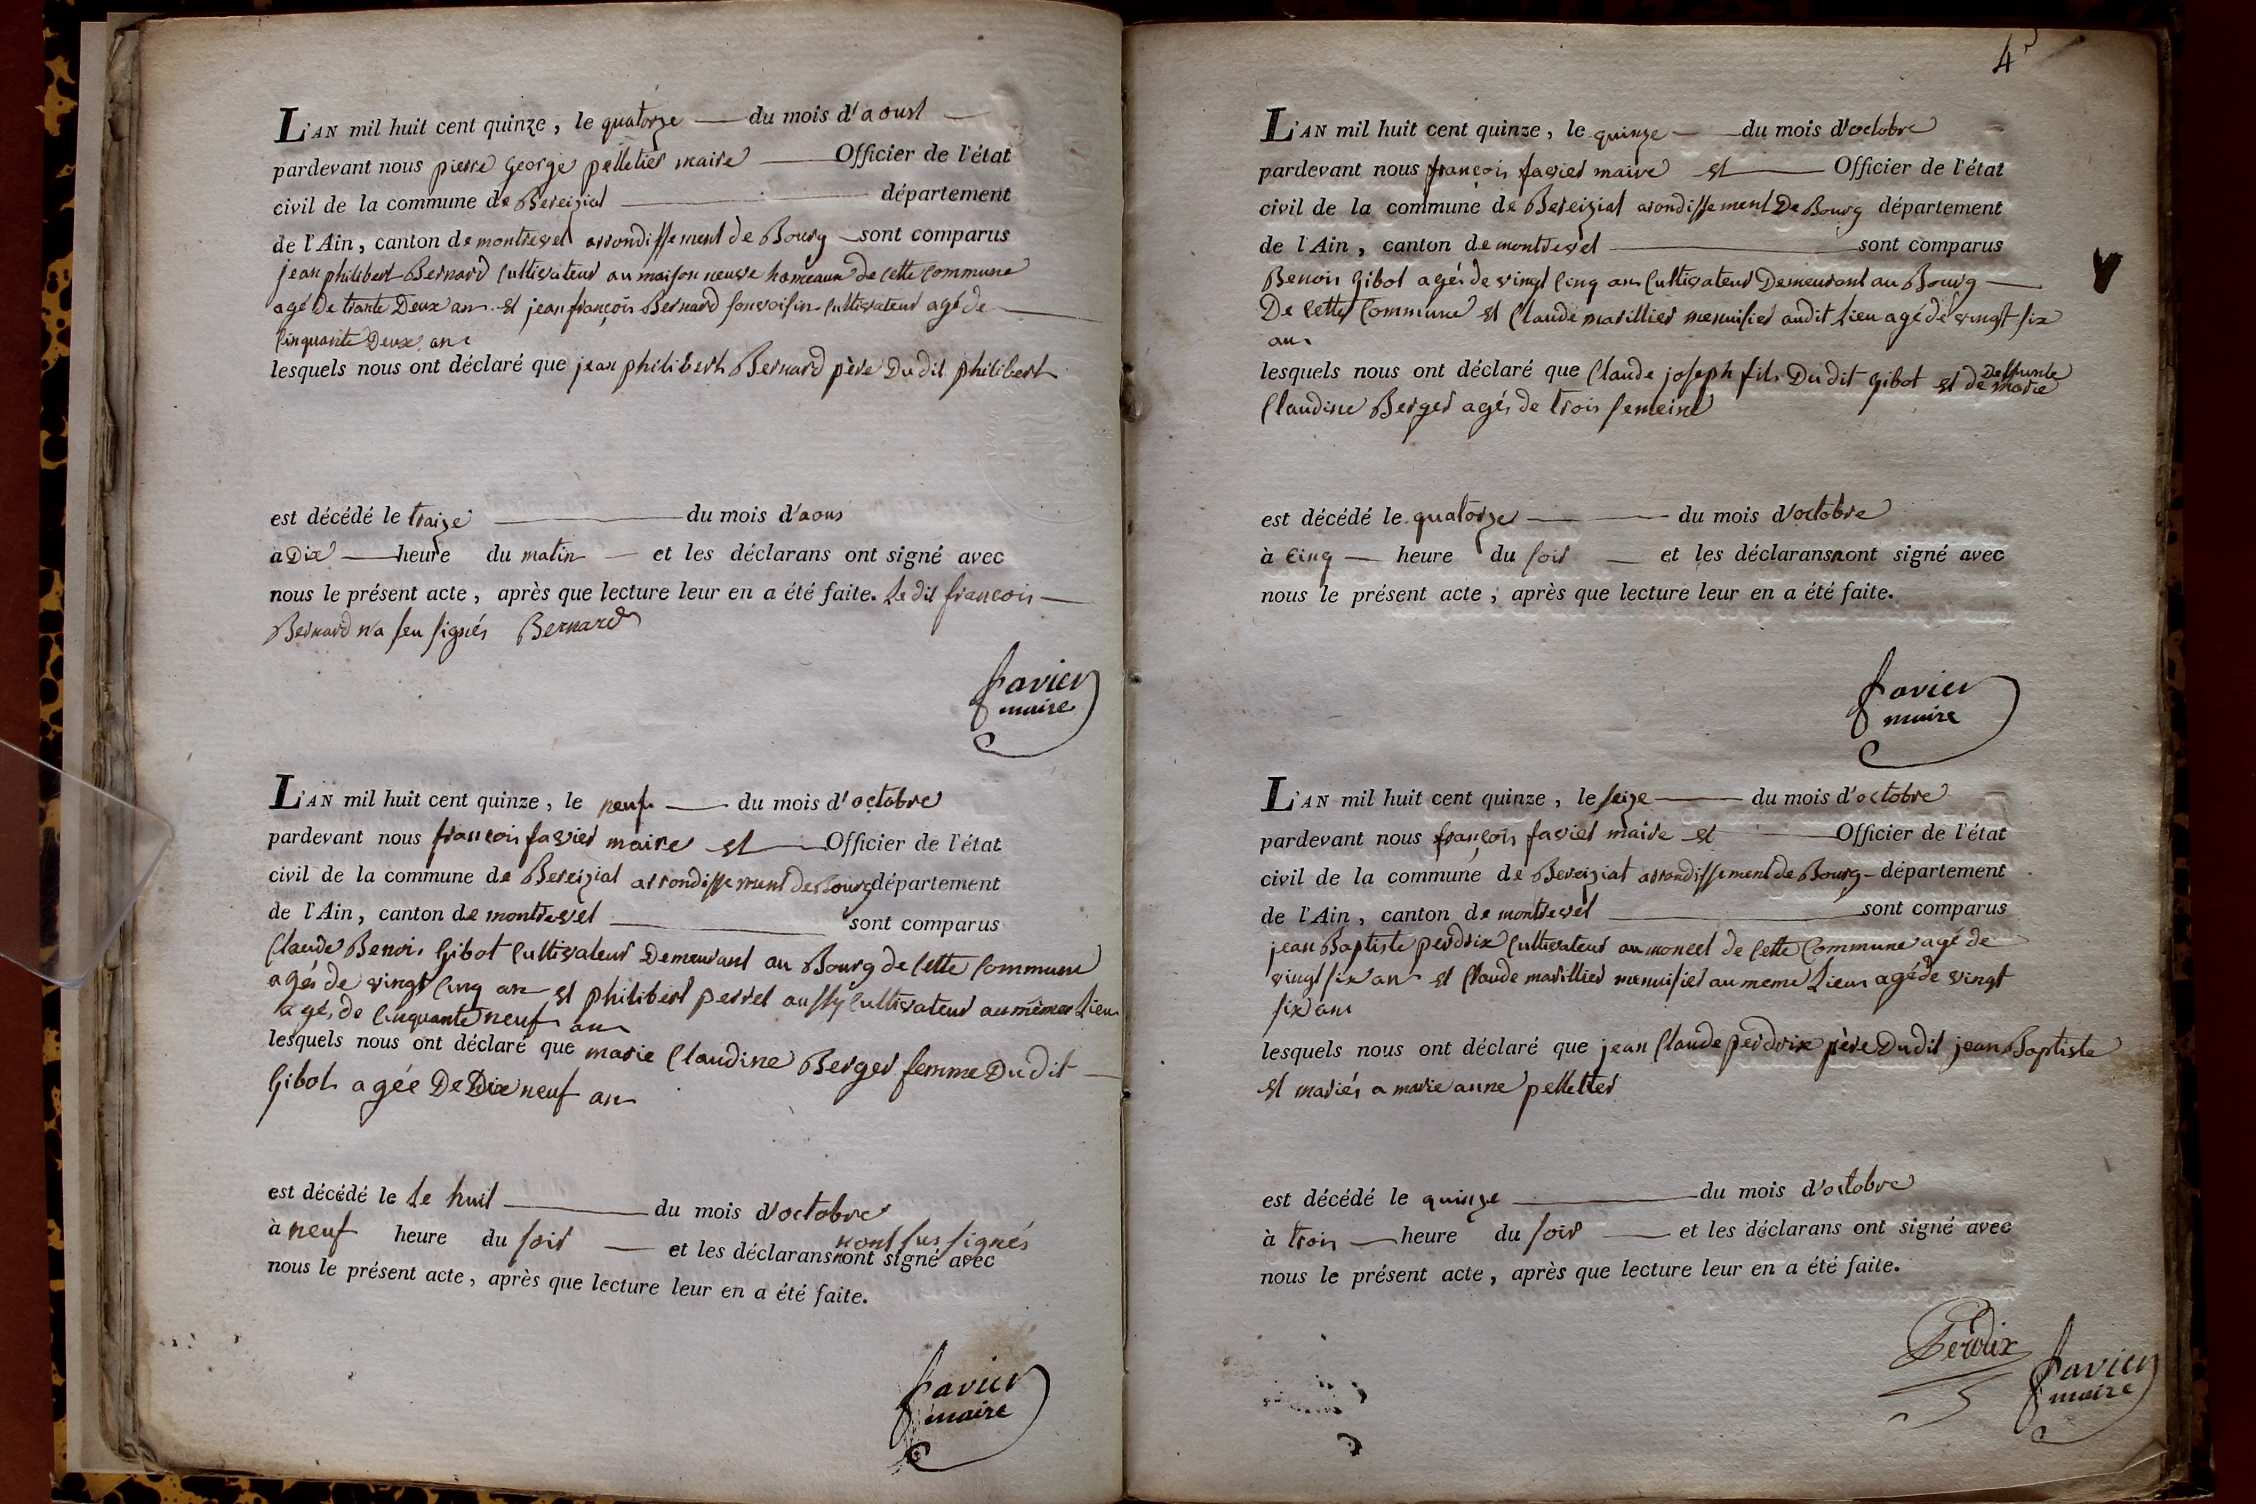 L'AN mil huit cent quinze, le quatorze du mois d'aoust
pardevant nous pierre george pelletier maire Officier de l'état
civil de la commune de Bereiziat département
de l'Ain, canton de montrevel arrondissement de Bourg sont comparus
jean philibert Bernard cultivateur au maison neuve hameaux de cette commune
agé De trante Deux an et jean françois Bernard son voisin cultivateur agé de
cinquante Deux an
lesquels nous ont déclaré que jean philibert Bernard père Dudit philibert
est décédé le traize du mois d'aous
à Dix heure du matin et les déclarans ont signé avec
nous le présent acte, après que lecture leur en a été faite. Le dit francois
Bernard n'a seu signés Bernard
favier
maire
L'AN mil huit cent quinze, le neuf du mois d'octobre
pardevant nous francois favier maire et Officier de l'état
civil de la commune de Bereiziat arrondissement de Bourg département
de l'Ain, canton de montrevel sont comparus
Claude Benois Gibot cultivateur Demeurant au Bourg de cette commune
agés de vingt cinq an et philibert perret aussy cultivateur au mêmes Lieu
agés de cinquante neuf an
lesquels nous ont déclaré que marie Claudine Berger femme Dudit
Gibot agée De Dix neuf an
est décédé le Le huit du mois d'octobre
n'ont sus signés
à neuf heure du soir et les déclarans n'ont signé avec
nous le présent acte, après que lecture leur en a été faite.
favier
maire
4
L'AN mil huit cent quinze, le quinze du mois d'octobre
pardevant nous françois favier maire et Officier de l'état
civil de la commune de Bereiziat arondissement De Bourg département
de l'Ain, canton de montrevel sont comparus
Benois Gibot agés de vingt cinq an cultivateur Demeurant au Bourg
De cette Commune et Claude marillier menuisier audit Lieu agé de vingt six
an
Deffunte
lesquels nous ont déclaré que Claude joseph fils Dudit Gibot et de marie
Claudine Berger agés de trois semeine
est décédé le quatorze du mois d'octobre
à cinq heure du soir et les déclarans n'ont signé avec
nous le présent acte, après que lecture leur en a été faite.
favier
maire
L'AN mil huit cent quinze, le seize du mois d'octobre
pardevant nous françois favier maire et Officier de l'état
civil de la commune de Bereiziat arrondissement de Bourg département
de l'Ain, canton de montrevel sont comparus
jean Baptiste perdrix cultivateur au moncel de cette Commune agé de
vingt six an et Claude marillier menuisier au meme Lieu agé de vingt
six an
lesquels nous ont déclaré que jean Claude perdrix père Dudit jean Baptiste
et mariés a marie anne pelletier
est décédé le quinze du mois d'octobre
à trois heure du soir et les déclarans ont signé avec
nous le présent acte, après que lecture leur en a été faite.
Perdrix
favier
maire